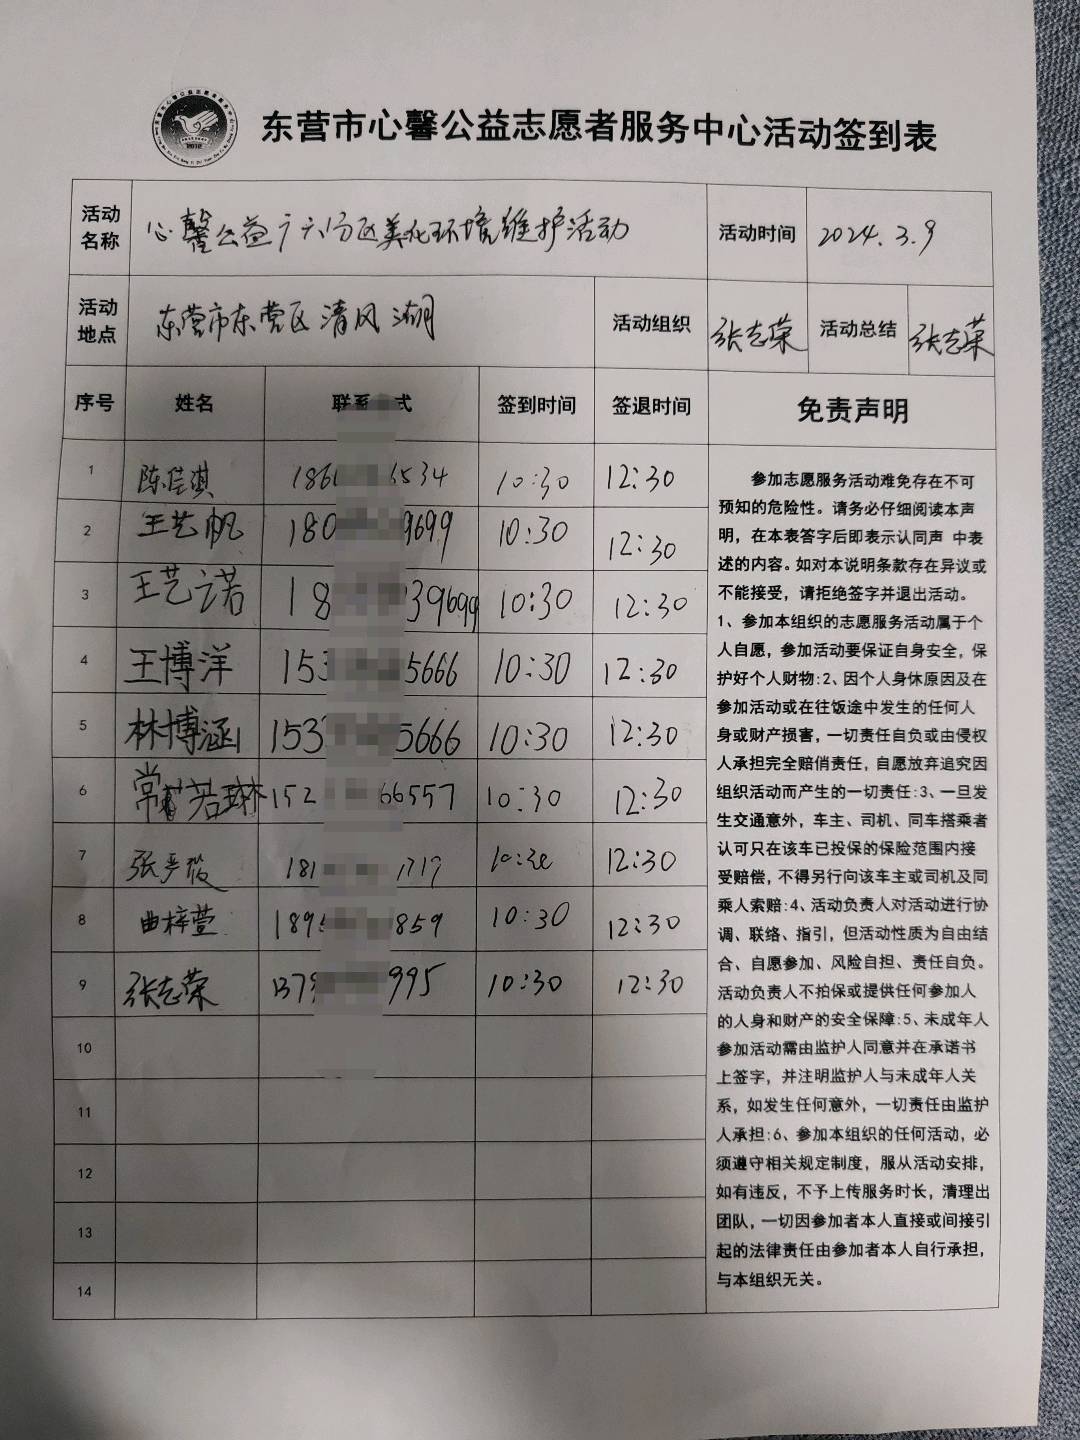 东营市心馨公益志愿者服务中心活动签到表
2012
活动名称 心馨公益 区美化环境维护活动 活动时间 2024.3.9
活动地点 东营市东营区清风湖 活动组织 张志荣 活动总结 张志荣
序号 姓名 联系 式 签到时间 签退时间 免责声明
1 陈佳淇 186 6534 10:30 12:30
2 王艺帆 180 9699 10:30 12:30
3 王艺诺 18 39699 10:30 12:30
4 王博洋 153 5666 10:30 12:30
5 林博涵 153 5666 10:30 12:30
6 常 若琳 152 66557 10:30 12:30
7 张 181 1717 10:30 12:30
8 曲梓萱 189 859 10:30 12:30
9 张志荣 1379 995 10:30 12:30
10
11
12
13
14
参加志愿服务活动难免存在不可
预知的危险性。请务必仔细阅读本声
明，在本表签字后即表示认同声 中表
述的内容。如对本说明条款存在异议或
不能接受，请拒绝签字并退出活动。
1、参加本组织的志愿服务活动属于个
人自愿，参加活动要保证自身安全，保
护好个人财物:2、因个人身休原因及在
参加活动或在往饭途中发生的任何人
身或财产损害，一切责任自负或由侵权
人承担完全赔俏责任，自愿放弃追究因
组织活动而产生的一切责任:3、一旦发
生交通意外，车主、司机、同车搭乘者
认可只在该车已投保的保险范围内接
受赔偿，不得另行向该车主或司机及同
乘人索赔:4、活动负责人对活动进行协
调、联络、指引，但活动性质为自由结
合、自愿参加、风险自担、责任自负。
活动负责人不拍保或提供任何参加人
的人身和财产的安全保障:5、未成年人
参加活动需由监护人同意并在承诺书
上签字，并注明监护人与未成年人关
系，如发生任何意外，一切责任由监护
人承担:6、参加本组织的任何活动，必
须遵守相关规定制度，服从活动安排，
如有违反，不予上传服务时长，清理出
团队，一切因参加者本人直接或间接引
起的法律责任由参加者本人自行承担，
与本组织无关。